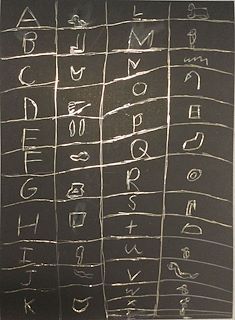 A L
B M
C N
D O
E P
F Q
G R
H S
I T
J U
K V
W
X